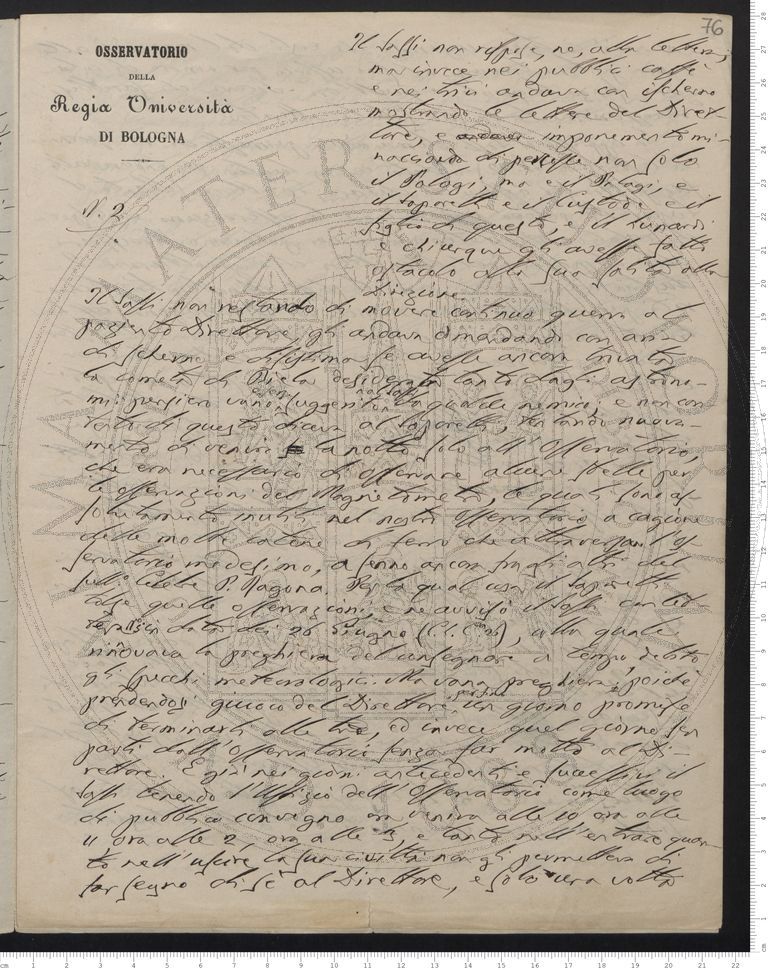 76
OSSERVATORIO
DELLA
Regia Università
DI BOLOGNA
N. 2
Il Saffi non rispose, no, alla lettera;
ma invece nei pubblici caffè
e nei andava con ischerno
mostrando le lettere del Diret-
tore, e imponemento mi-
nacciando di non solo
il Palagi, ma e il Palagi, e
il Saporetti e il Custode e il
figlio di questi, e il Lunardi
e chiunque gli avesse fatto
ostacolo alla sua salita alla
Direzione.
Il Saffi non restando di movere continua guerra al
paziente Direttore gli andava domandando con aria
di scherno e disistima se avesse ancora trovata
la cometa di Biela desiderata tanto dagli astrono-
mi; pensiero non
tento di questo diceva al Saporetti, tentando nuova-
mente di venire la notte solo all'Osservatorio,
che era necessario di osservare alcune stelle per
le osservazioni del Magnetometro, le quali sono as-
solutamente inutili nel nostro Osservatorio a cagione
delle molte catene di ferro che attraversano l'Os-
servatorio medesimo, a senno ancora fra gli altri del
celebre P. Ragona. Per la qual cosa il Saporetti
quelle osservazioni, e ne avvisò il Saffi con let-
tera in data dei 26 Giugno, alla quale
rinnovava la preghiera del consegnare a tempo debito
gli specchi meteorologici. Ma vana preghiera, poiché
prendendosi giuoco del Direttore perfino un giorno promise
di terminarli alle tre, ed invece quel giorno sen
partì dall'Osservatorio senza far motto al Di-
rettore. E già nei giorni antecedenti e successivi il
Saffi tenendo l'Uffizio dell'Osservatorio come luogo
di pubblico convegno ora veniva alle 10 ora alle
11 ora alle 2, ora alle 3, e tanto nell'entrare quan-
to nell'uscire la sua civiltà non gli permetteva di
far segno di sé al Direttore, e solo una volta